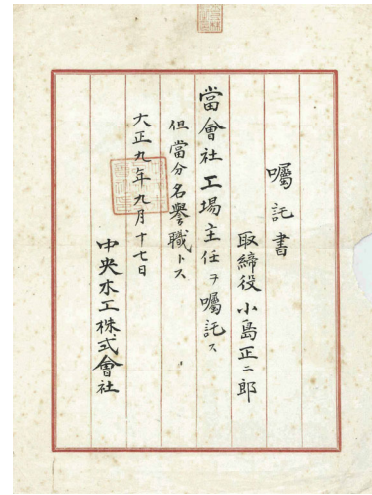 囑託書
取締役 小島正二郎
當會社工場主任ヲ囑託ス
但當分名譽職トス
大正九年九月十七日
中央木工株式會社